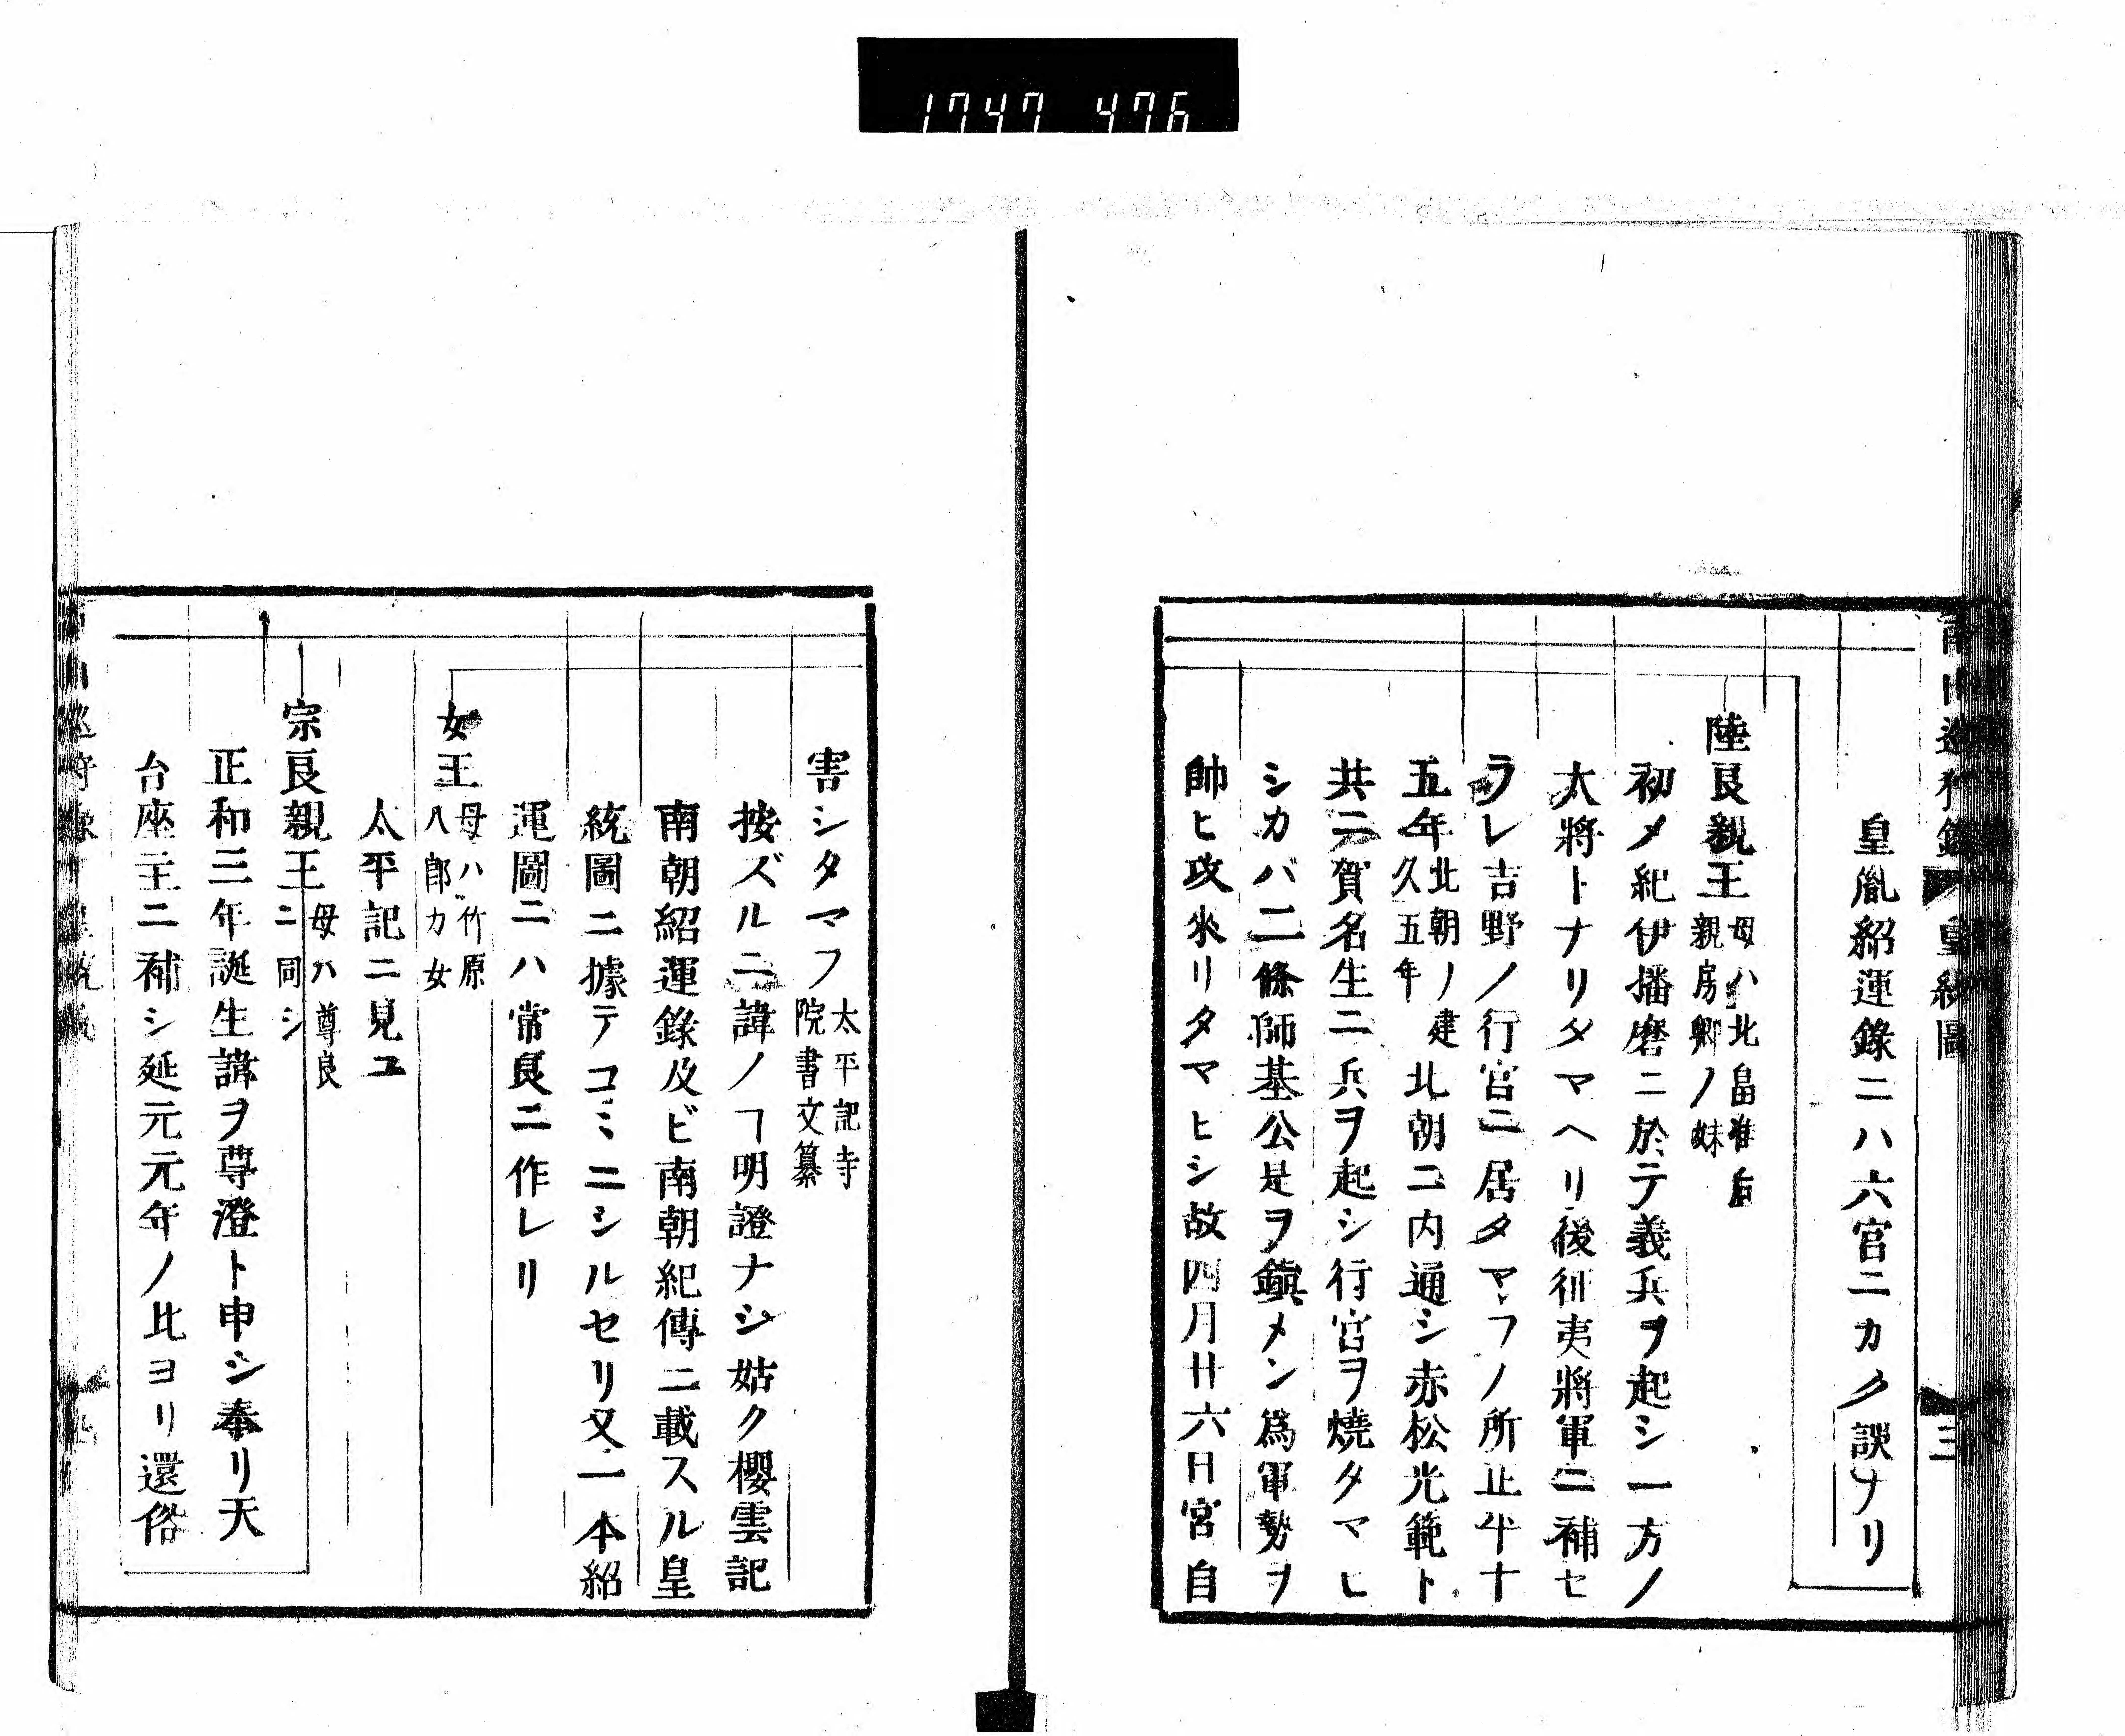 1747 476
皇胤紹運錄ニハ六宮ニカク誤ナリ
陸良親王母ハ北畠准后
親房卿ノ妹
初メ紀伊播磨ニ於テ義兵ヲ起シ一方ノ
大將トナリタマヘリ後征夷將軍ニ補セ
ラレ吉野ノ行宮ニ居タマフノ所正平十
五年北朝ノ建
久五年北朝ニ内通シ赤松光範ト
共ニ賀名生ニ兵ヲ起シ行宮ヲ燒タマヒ
シカバ二條師基公是ヲ鎭メン爲軍勢ヲ
帥ヒ攻來リタマヒシ故四月廿六日宮自
害シタマフ太平記寺
院書文纂
按ズルニ諱ノヿ明證ナシ姑ク櫻雲記
南朝紹運錄及ビ南朝紀傳ニ載スル皇
統圖ニ據テコヽニシルセリ又一本紹
運圖ニハ常良ニ作レリ
女王母ハ竹原
八郎カ女
太平記ニ見ユ
宗良親王母ハ尊良
ニ同シ
正和三年誕生諱ヲ尊澄ト申シ奉リ天
台座主ニ補シ延元元年ノ比ヨリ還俗